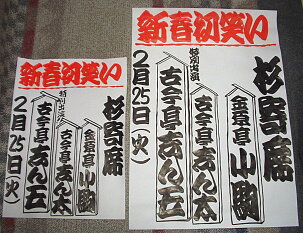 新春初笑い
杉寄席
金原亭 小駒
特別出演
古今亭 志ん太
古今亭志ん五
2月25日(火)
新春初笑い
杉寄席
金原亭 小駒
特別出演
古今亭 志ん太
古今亭志ん五
2月25日(火)